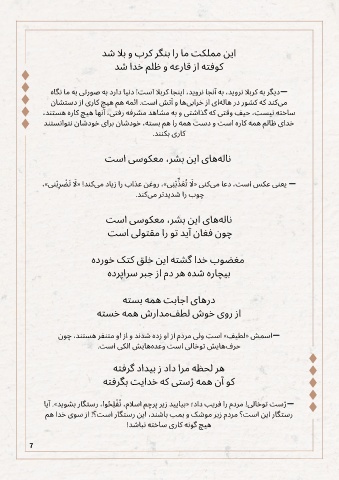 این مملکت ما را بنگر کرب و بلا شد
کوفته از قارعه و ظلم خدا شد
—دیگر به کربلا نروید، به آنجا نروید، اینجا کربلا است! دنیا دارد به صورتی به ما نگاه
می‌کند که کشور در هاله‌ای از خرابی‌ها و آتش است. ائمه هم هیچ کاری از دستشان
ساخته نیست، حیف وقتی که گذاشتی و به مشاهد مشرفه رفتی، آنها هیچ کاره هستند،
خدای ظالم همه کاره است و دست همه را هم بسته، خودشان برای خودشان نتوانستند
کاری بکنند.
ناله‌های این بشر، معکوسی است
— یعنی عکس است، دعا می‌کنی «لَا تُعَذِّبْنِی»، روغن عذاب را زیاد می‌کند! «لَا تَضْرِبْنِی»،
چوب را شدیدتر می‌کند.
ناله‌های این بشر، معکوسی است
چون فغان آید تو را مقتولی است
مغضوب خدا گشته این خلق کتک خورده
بیچاره شده هر دم از جبر سراپرده
درهای اجابت همه بسته
از روی خوش لطف‌مدارش همه خسته
—اسمش «لطیف» است ولی مردم از او زده شدند و از او متنفر هستند، چون
حرف‌هایش توخالی است وعده‌هایش الکی است.
هر لحظه مرا داد ز بیداد گرفته
کو آن همه ژستی که خدایت بگرفته
—ژست توخالی! مردم را فریب داد؛ «بیایید زیر پرچم اسلام، تُفْلِحُوا، رستگار بشوید». آیا
رستگار این است؟ مردم زیر موشک و بمب باشند، این رستگار است؟! از سوی خدا هم
هیچ گونه کاری ساخته نباشد!
7